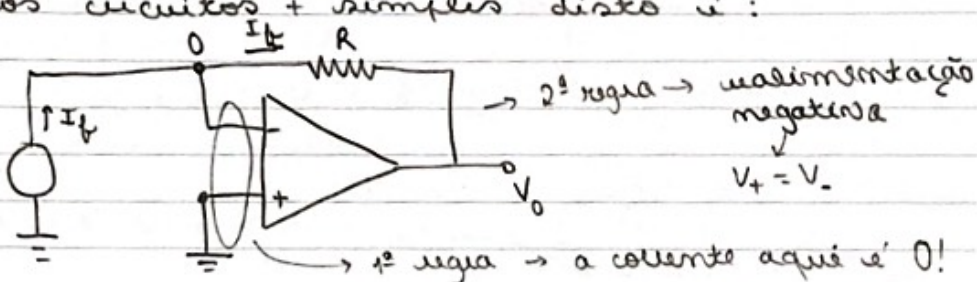 os circuitos + simples disto é:
0 If R
↑ If
→ 2ª regra → realimentação
negativa
V+ = V-
-
+
Vo
→ 1ª regra → a corrente aqui é 0!